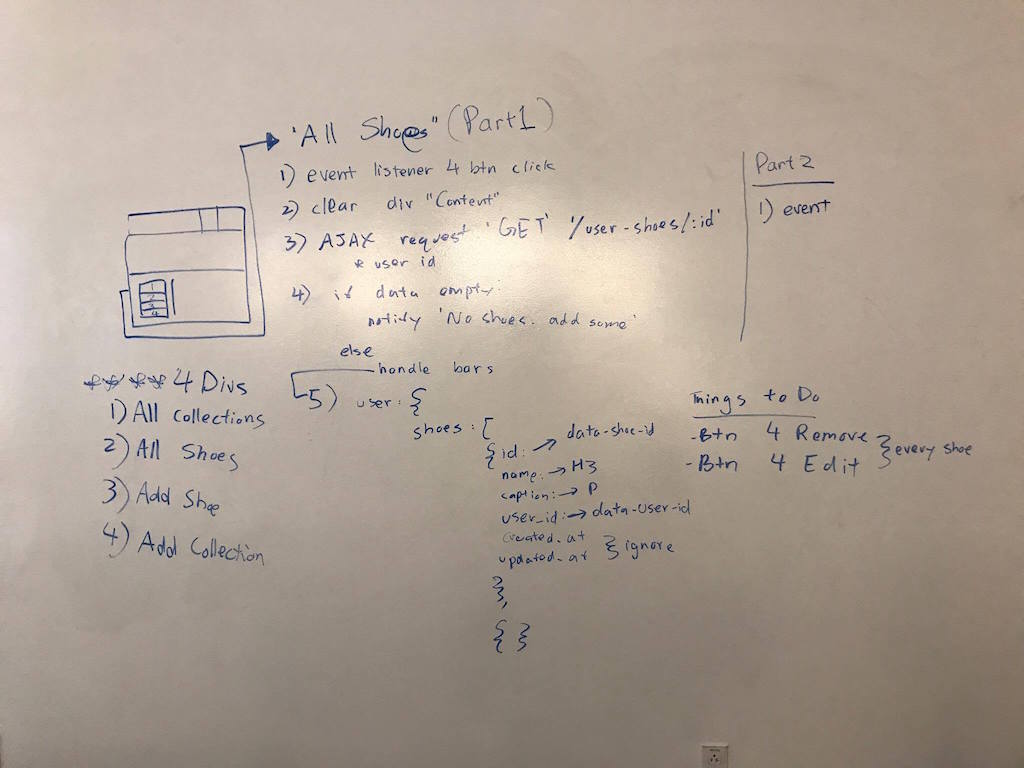 'All Shoes" (Part1)
1) event listener 4 btn click
2) clear div "Content"
3) AJAX request 'GET' '/user-shoes/:id'
* user id
4) if data empty:
notify 'No shoes. add some'
else
handle bars
5) user: {
shoes: [
{id: → data-shoe-id
name: → H3
caption: → P
user_id: → data-user-id
created_at
updated_at } ignore
},
{ }
Part 2
1) event
1
2
3
4
**** 4 Divs
1) All Collections
2) All Shoes
3) Add Shoe
4) Add Collection
Things to Do
-Btn 4 Remove
-Btn 4 Edit } every shoe